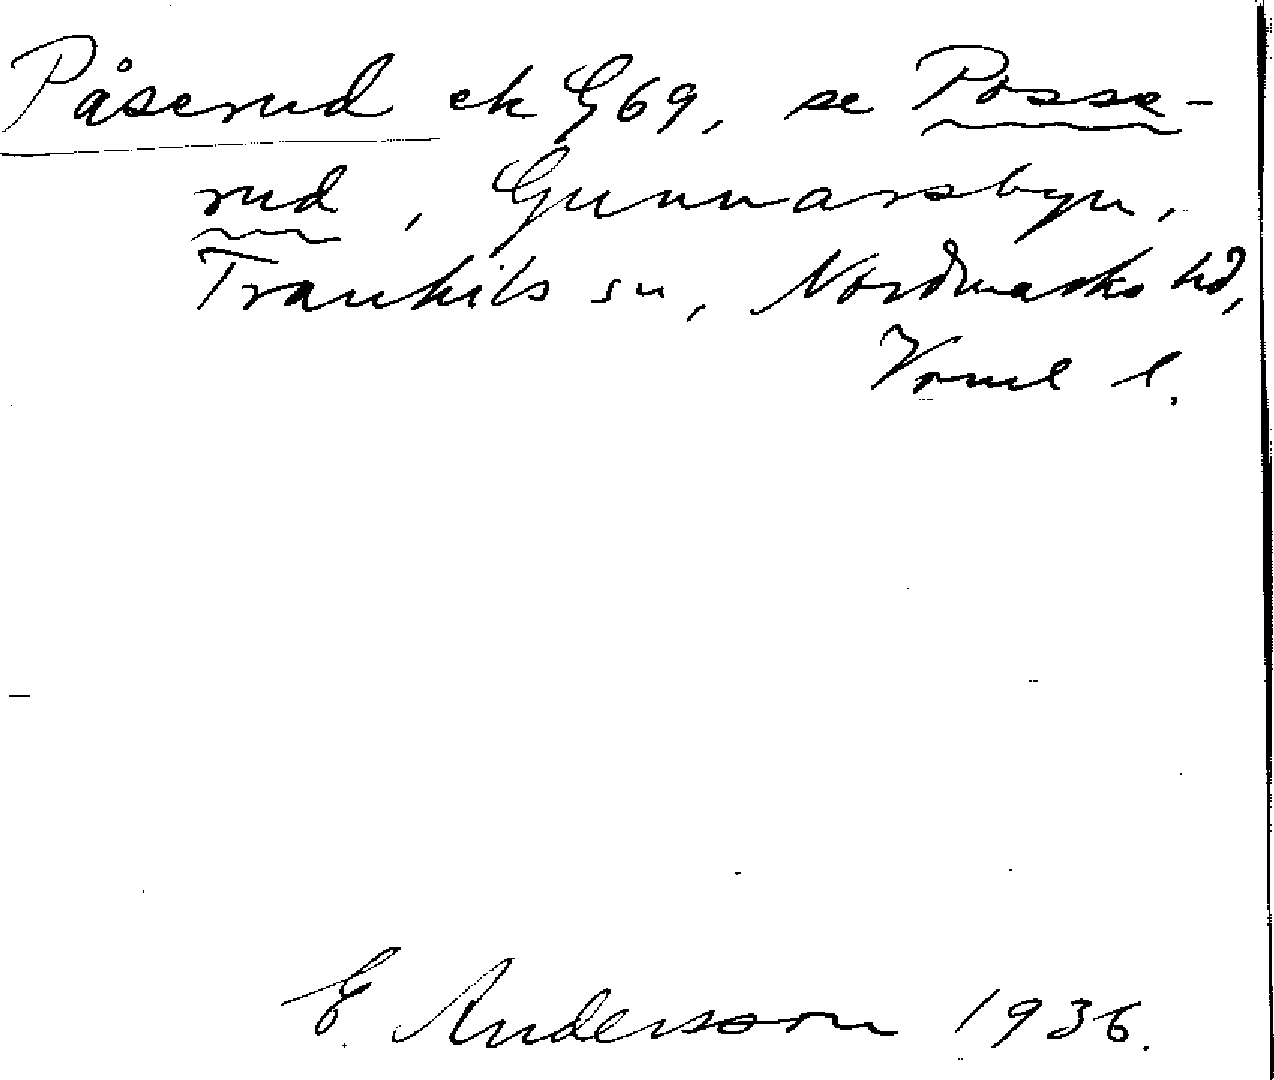 Påserud ek G69, se Posse-
rud, Gunnarsbyn,
Trankils sn, Nordmarks hd,
Verml l.
E. Andersson 1936.